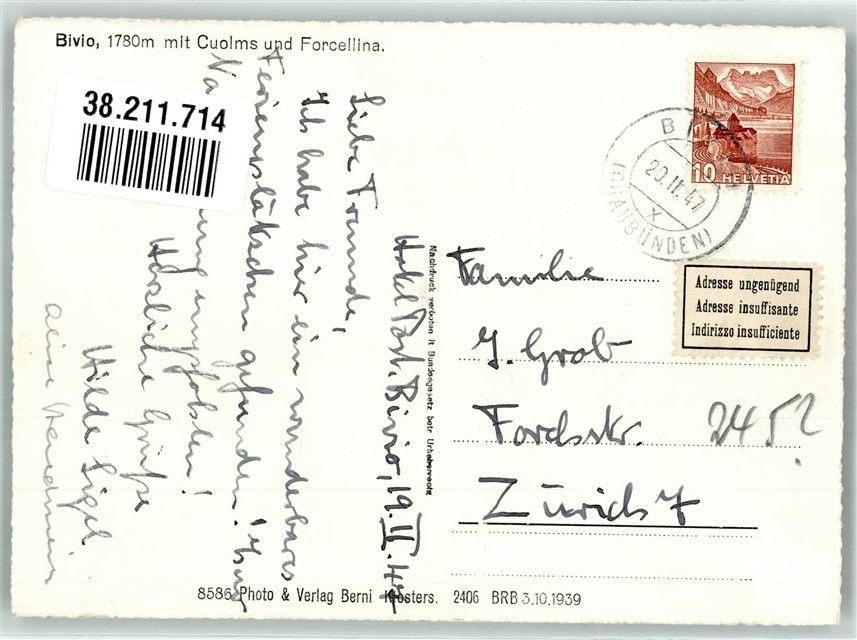 Bivio, 1780m mit Cuolms und Forcellina.
38.211.714
10 HELVETIA
20.II.47
X
(GRAUBÜNDEN)
Adresse ungenügend
Adresse insuffisante
Indirizzo insufficiente
Hotel Post, Bivio, 19.II.47
Liebe Freunde,
Ich habe hier ein wunderbares
Ferienplätzchen gefunden! Zur
empfohlen!
Herzliche Grüsse
Hilde Sigel
Nachdruck verboten lt Bundesgesetz betr Urheberrecht
Familie
J. Grob
Forchstr. 245?
Zürich 7
8586 Photo & Verlag Berni Klosters. 2406 BRB 3.10.1939